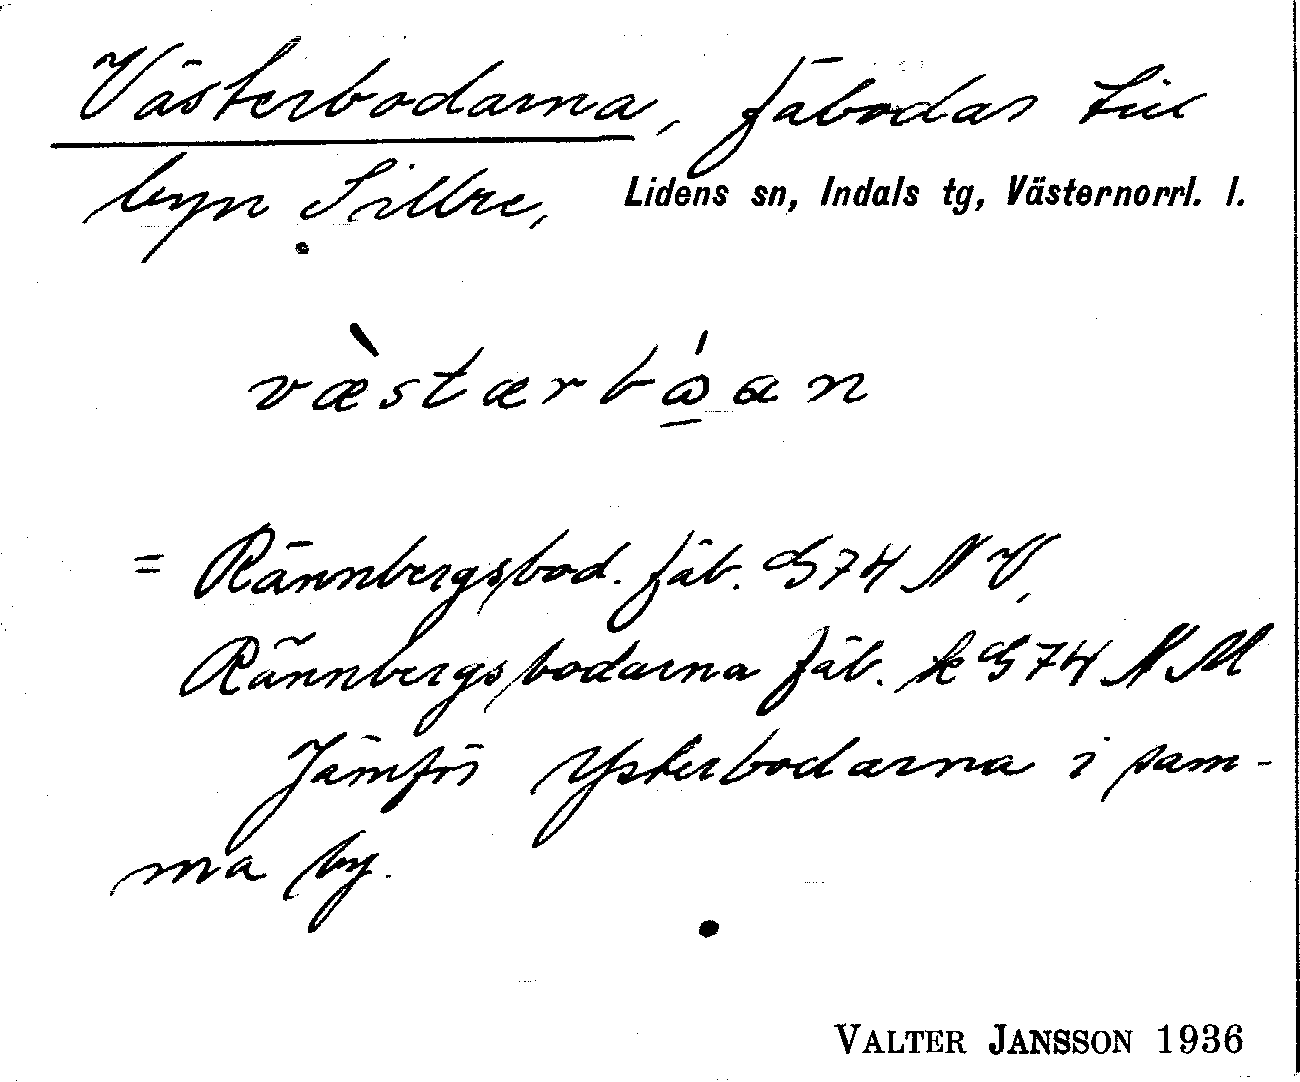 Västerbodarna, fäbodar till
byn Sillre, Lidens sn, Indals tg, Västernorrl. l.
væ̀stærbɷ́an
= Rännbergsbod. fäb. G74 NV,
Rännbergsbodarna fäb. k G74 NM
Jämför Ysterbodarna i sam-
ma by.
VALTER JANSSON 1936